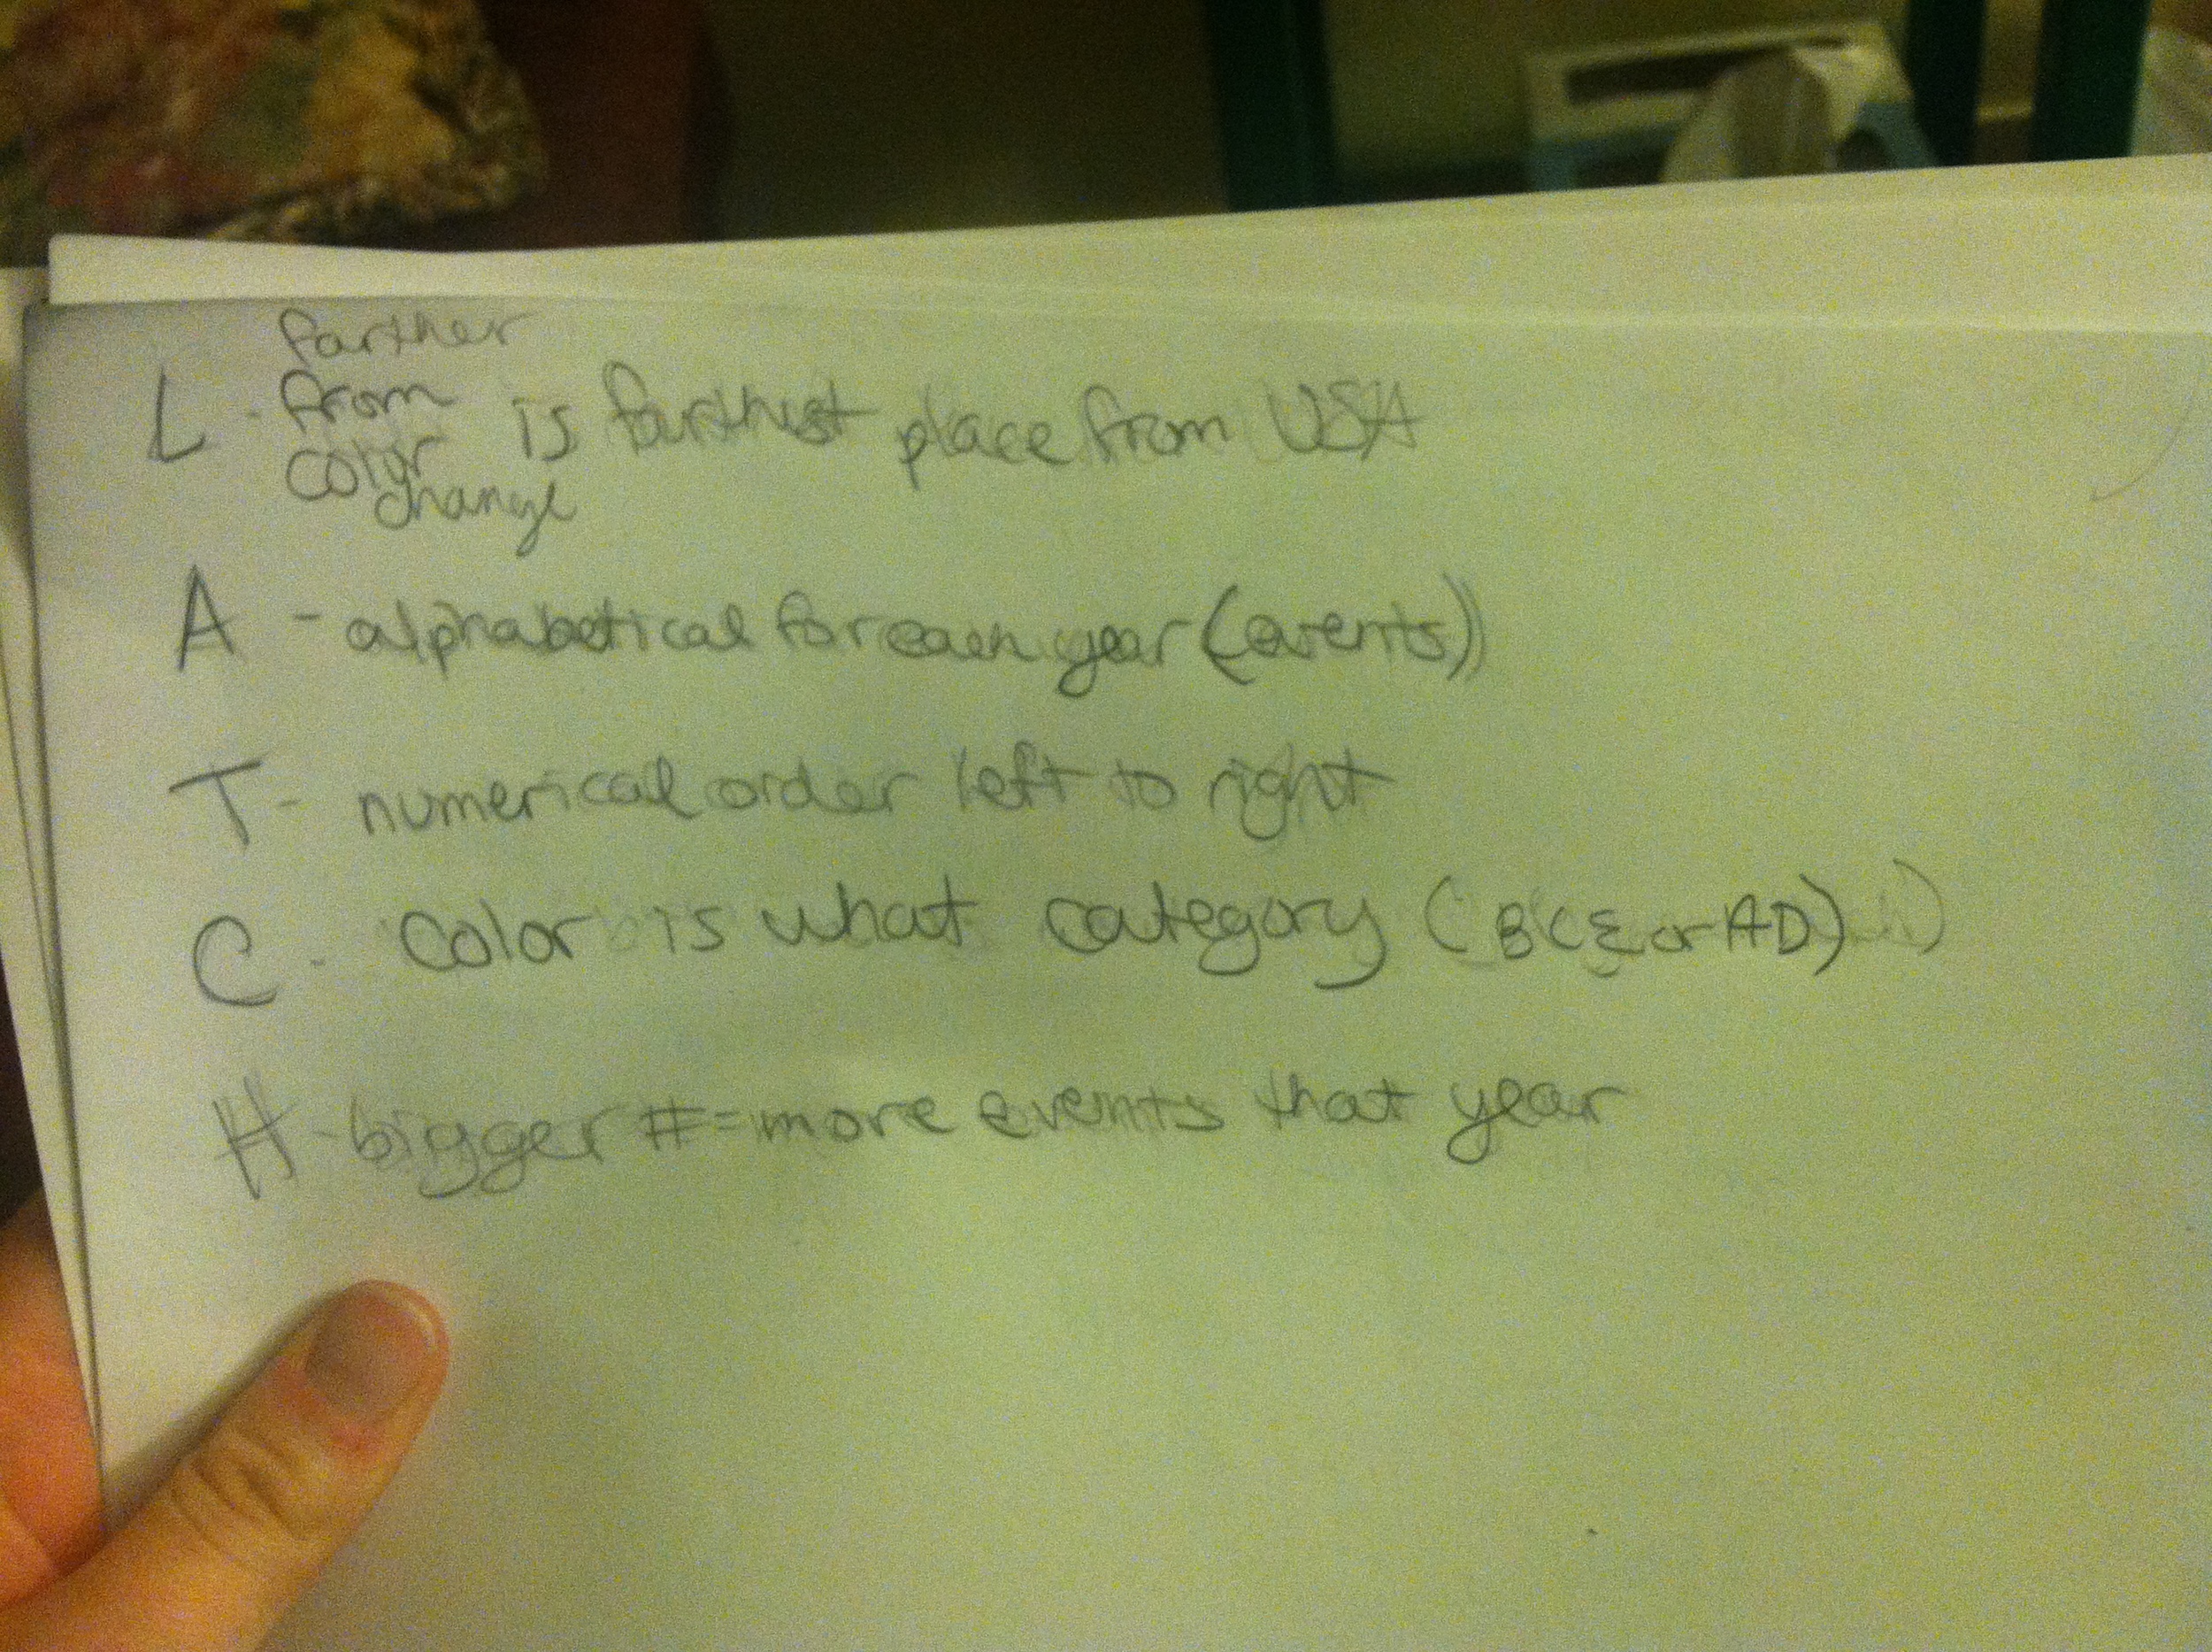 L - farther from color change is farthest place from USA
A - alphabetical for each year (events)
T - numerical order left to right
C - Color is what category (BCE or AD)
H - bigger # = more events that year